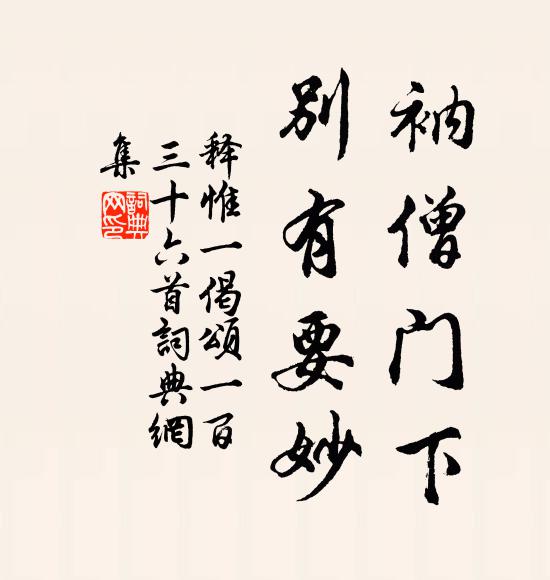 衲僧门下
别有要妙
释惟一偈颂一百
三十六首詞典網
集
詞典
网印